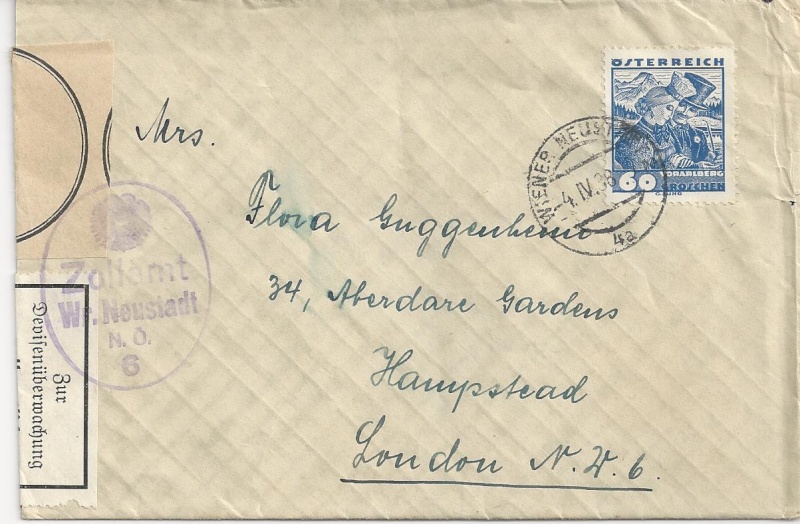 ÖSTERREICH
VORARLBERG
60 GROSCHEN
WIENER NEUST
4.IV.38
4a
Mrs.
Flora Guggenheim
34, Aberdare Gardens
Hampstead
London N.W. 6.
Zollamt
Wr. Neustadt
N. Ö.
6
Zur
Devisenüberwachung